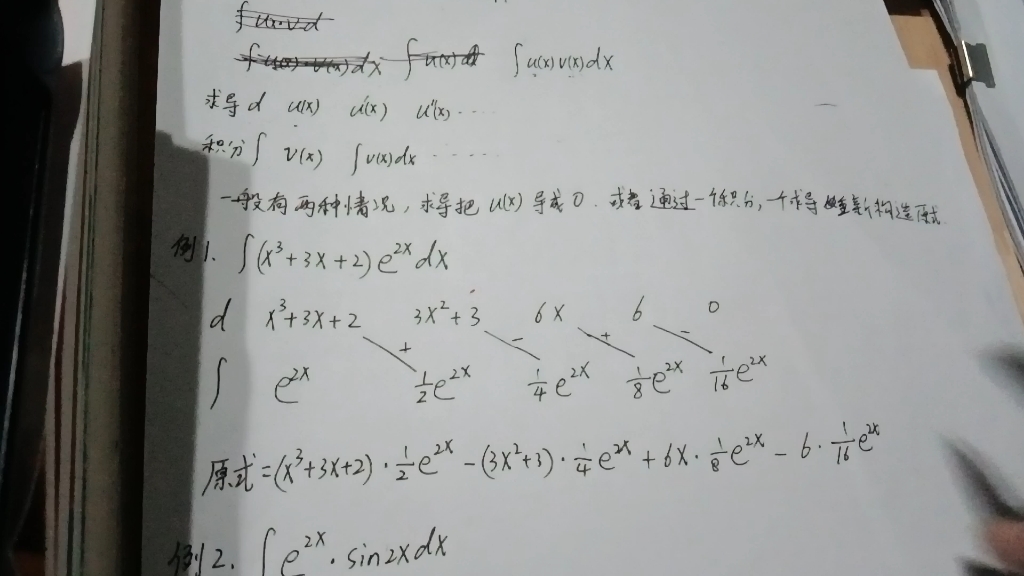 ∫u(x)v(x)dx
求导 d u(x) u'(x) u''(x) ·····
积分 ∫ v(x) ∫v(x)dx ·····
一般有两种情况，求导把 u(x) 导成 0. 或者通过一个积分，一个求导 重新构造原式
例1. ∫(x³+3x+2)e²ˣdx
d x³+3x+2 3x²+3 6x 6 0
+ − + −
∫ e²ˣ ½e²ˣ ¼e²ˣ ⅛e²ˣ 1/16 e²ˣ
原式=(x³+3x+2)·½e²ˣ−(3x²+3)·¼e²ˣ+6x·⅛e²ˣ−6·1/16 e²ˣ
例2. ∫e²ˣ·sin2xdx